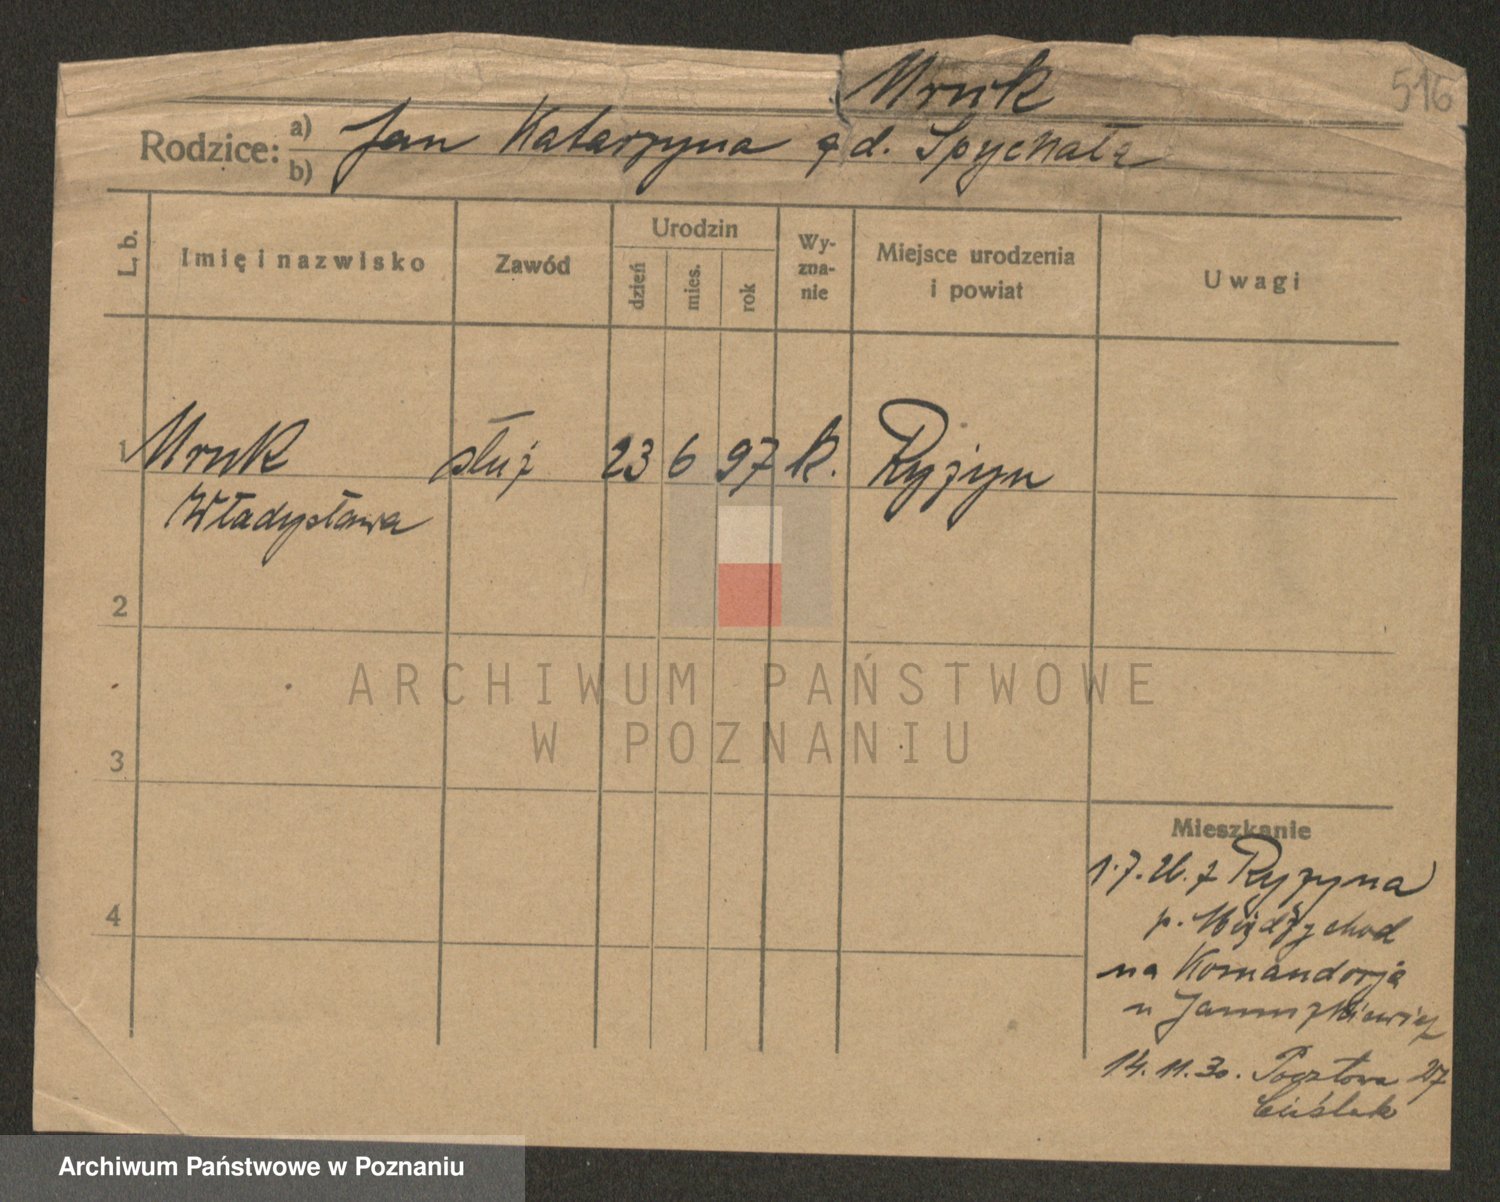 Mruk
516
Rodzice: a) Jan Katarzyna
b) d. Spychała
L. b. Imię i nazwisko Zawód Urodzin dzień mies. rok Wy-zna-nie Miejsce urodzenia i powiat Uwagi
1 Mruk służ 23 6 97 k. Ryżyn
Władysława
2
3
4
Mieszkanie
1.7.26. z Ryżyna
p. Międzychod
na Komandorję
u Januszkiewicz
14.11.30. Pocztowa 27
Cieślak
ARCHIWUM PAŃSTWOWE
W POZNANIU
Archiwum Państwowe w Poznaniu